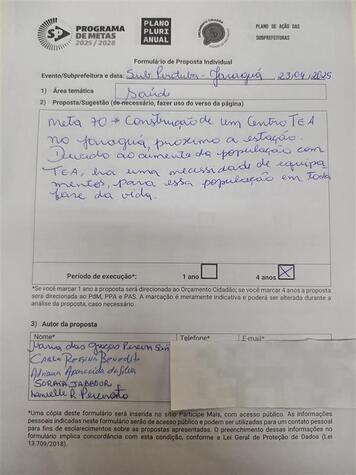 SP
PROGRAMA
DE METAS
2025 / 2028
PLANO
PLURI
ANUAL
PLANO DE AÇÃO DAS
SUBPREFEITURAS
Formulário de Proposta Individual
Evento/Subprefeitura e data: Sub Pirituba - Jaraguá 23/04/2025
1) Área temática Saúde
2) Proposta/Sugestão (se necessário, fazer uso do verso da página)
Meta 70 → Construção de um Centro TEA
no Jaraguá, próximo a estação.
Devido ao aumento da população com
TEA, há uma necessidade de equipa
mentos, para essa população em toda
fase da vida.
Período de execução*: 1 ano 4 anos X
*Se você marcar 1 ano a proposta será direcionada ao Orçamento Cidadão; se você marcar 4 anos a proposta
será direcionada ao PdM, PPA e PAS. A marcação é meramente indicativa e poderá ser alterada durante a
análise da proposta, caso necessário.
3) Autor da proposta
Nome* Telefone* E-mail*
Maria das Graças Pereira
Carla Regina Benedito
Adriana Aparecida da Silva
SORAIA JABOUR
Danielle R.
*Uma cópia deste formulário será inserida no sítio Participe Mais, com acesso público. As informações
pessoais indicadas neste formulário serão de acesso público e podem ser utilizadas para um contato pessoal
para fins de esclarecimentos sobre as propostas apresentadas. O preenchimento dessas informações no
formulário implica concordância com esta condição, conforme a Lei Geral de Proteção de Dados (Lei
13.709/2018).